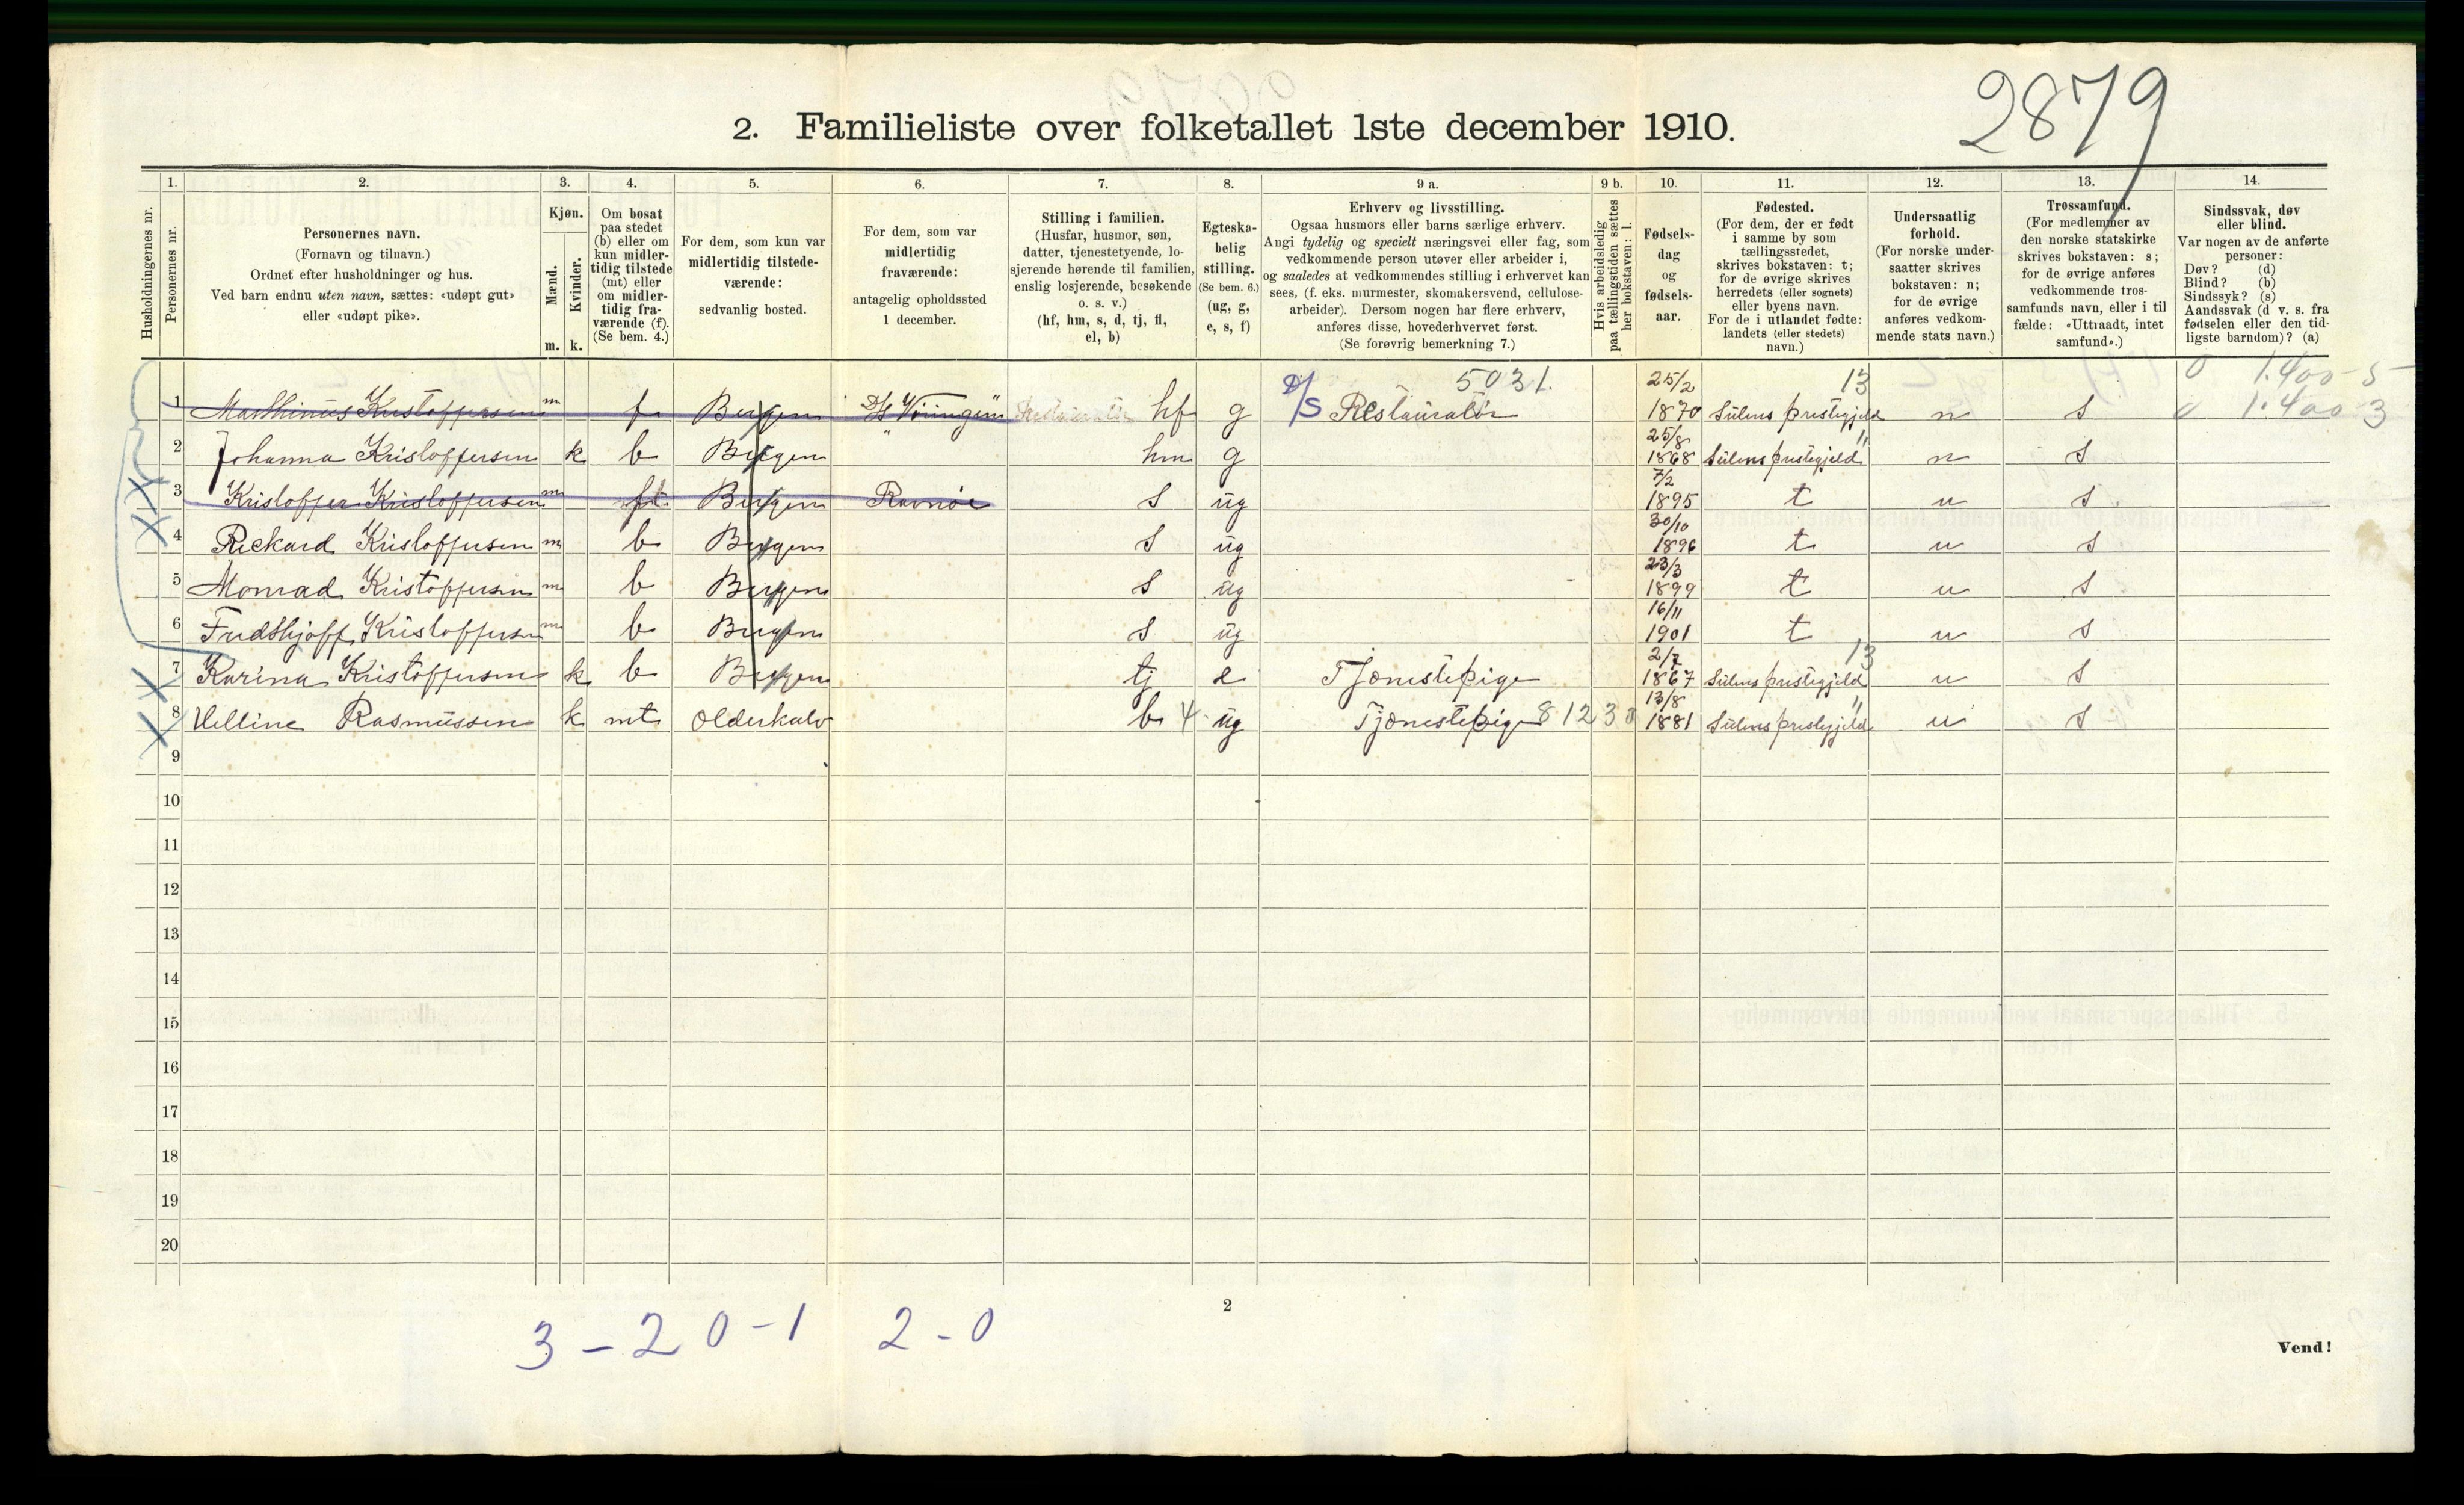 2879
2. Familieliste over folketallet 1ste december 1910.
1. 2. 3. 4. 5. 6. 7. 8. 9 a. 9 b. 10. 11. 12. 13. 14.
Husholdningernes nr.
Personernes nr.
Personernes navn.
(Fornavn og tilnavn.)
Ordnet efter husholdninger og hus.
Ved barn endnu uten navn, sættes: «udøpt gut»
eller «udøpt pike».
Kjøn.
Mænd.
Kvinder.
m. k.
Om bosat
paa stedet
(b) eller om
kun midler-
tidig tilstede
(mt) eller
om midler-
tidig fra-
værende (f).
(Se bem. 4.)
For dem, som kun var
midlertidig tilstede-
værende:
sedvanlig bosted.
For dem, som var
midlertidig
fraværende:
antagelig opholdssted
1 december.
Stilling i familien.
(Husfar, husmor, søn,
datter, tjenestetyende, lo-
sjerende hørende til familien,
enslig losjerende, besøkende
o. s. v.)
(hf, hm, s, d, tj, fl,
el, b)
Egteska-
belig
stilling.
(Se bem. 6.)
(ug, g,
e, s, f)
Erhverv og livsstilling.
Ogsaa husmors eller barns særlige erhverv.
Angi tydelig og specielt næringsvei eller fag, som
vedkommende person utøver eller arbeider i,
og saaledes at vedkommendes stilling i erhvervet kan
sees, (f. eks. murmester, skomakersvend, cellulose-
arbeider). Dersom nogen har flere erhverv,
anføres disse, hovederhvervet først.
(Se forøvrig bemerkning 7.)
Hvis arbeidsledig
paa tællingstiden sættes
her bokstaven: l.
Fødsels-
dag
og
fødsels-
aar.
Fødested.
(For dem, der er født
i samme by som
tællingsstedet,
skrives bokstaven: t;
for de øvrige skrives
herredets (eller sognets)
eller byens navn.
For de i utlandet fødte:
landets (eller stedets)
navn.)
Undersaatlig
forhold.
(For norske under-
saatter skrives
bokstaven: n;
for de øvrige
anføres vedkom-
mende stats navn.)
Trossamfund.
(For medlemmer av
den norske statskirke
skrives bokstaven: s;
for de øvrige anføres
vedkommende tros-
samfunds navn, eller i til
fælde: «Uttraadt, intet
samfund».)
Sindssvak, døv
eller blind.
Var nogen av de anførte
personer:
Døv? (d)
Blind? (b)
Sindssyk? (s)
Aandssvak (d v. s. fra
fødselen eller den tid-
ligste barndom)? (a)
5031. 25/2 13 0 1.400-5
1 Marthinus Kristoffersen m f Bergen D/S Vøringen hf g D/S Restauratør 1870 Sulens prestegjeld n s 0 1.400 3
25/8 "
2 Johanna Kristoffersen k b Bergen " hm g 1868 Sulens prestegjeld n s
7/2
3 Kristoffer Kristoffersen m f Bergen s ug 1895 t n s
30/10
4 Rickard Kristoffersen m b Bergen s ug 1896 t n s
23/3
5 Monrad Kristoffersen m b Bergen s ug 1899 t n s
16/11
6 Fridthjoff Kristoffersen m b Bergen s ug 1901 t n s
2/7 13
7 Karina Kristoffersen k b Bergen tj e Tjenestepige 1867 Sulens prestegjeld n s
13/8 "
8 Helline Rasmussen k mt Olderkalv b 4 ug Tjenestepige 8123 1881 Sulens prestegjeld n s
9
10
11
12
13
14
15
16
17
18
19
20
2
3 - 2 0 - 1 2 - 0
Vend!